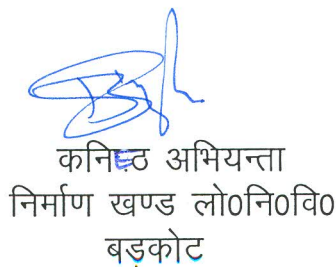 कनिष्ठ अभियन्ता
निर्माण खण्ड लो0नि0वि0
बड़कोट